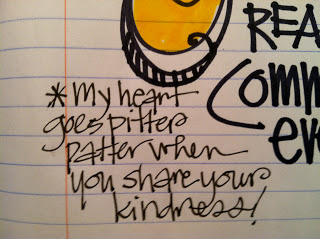 REA
Comm
eve
* my heart
goes pitter
patter when
you share your
kindness!